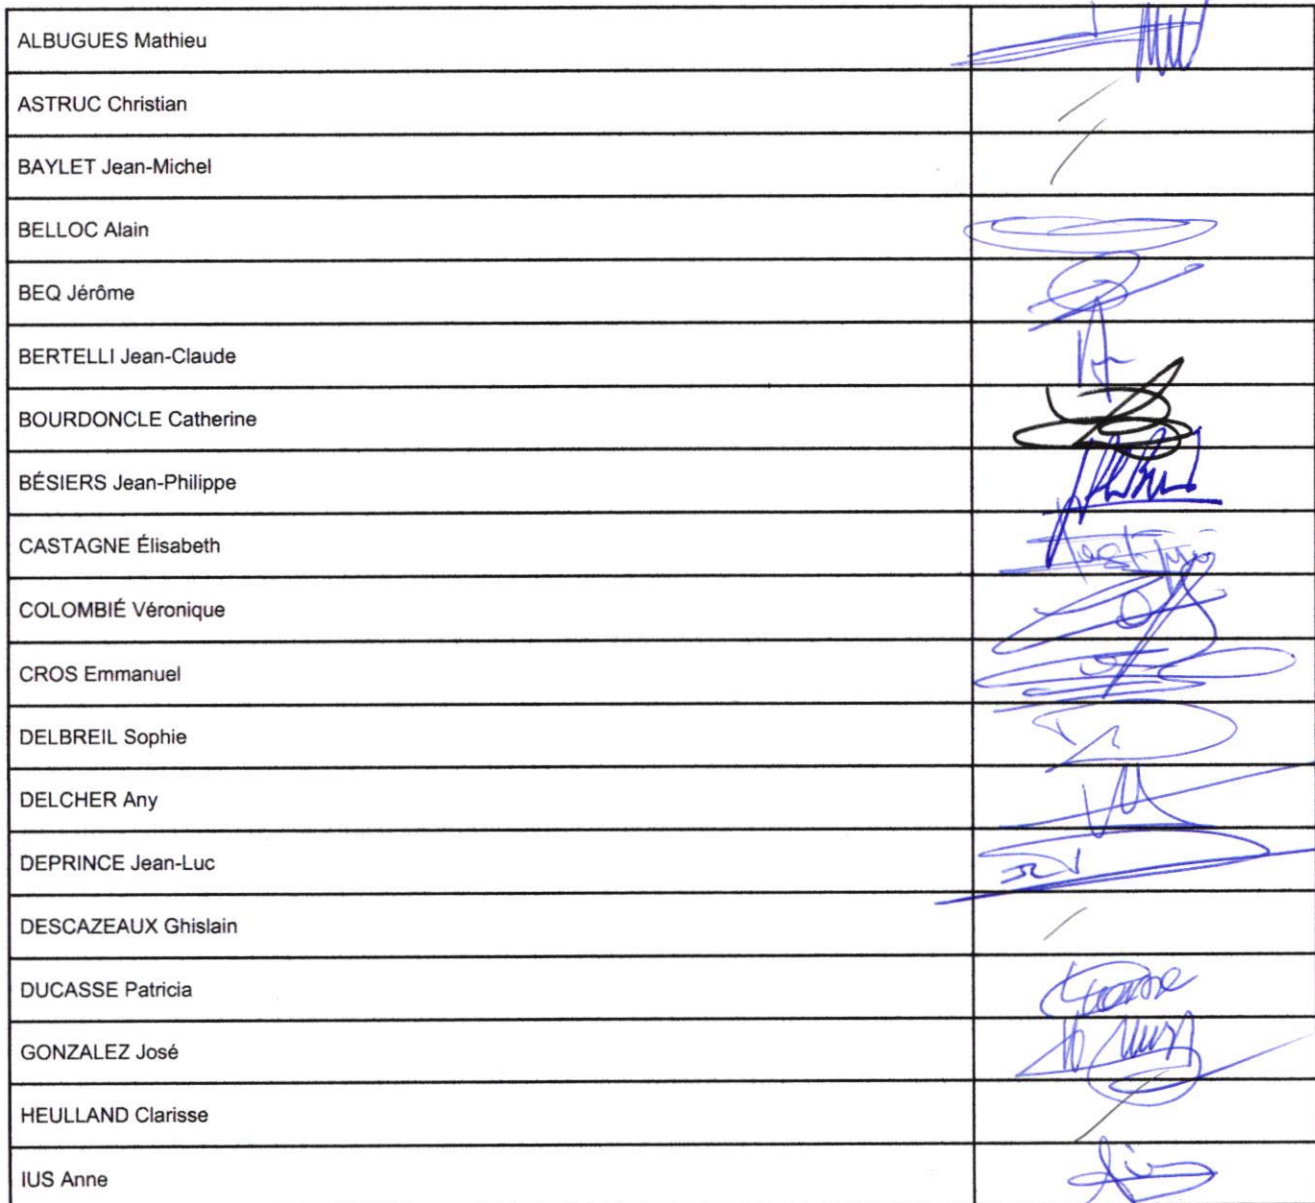 ALBUGUES Mathieu
ASTRUC Christian
BAYLET Jean-Michel
BELLOC Alain
BEQ Jérôme
BERTELLI Jean-Claude
BOURDONCLE Catherine
BÉSIERS Jean-Philippe
CASTAGNE Élisabeth
COLOMBIÉ Véronique
CROS Emmanuel
DELBREIL Sophie
DELCHER Any
DEPRINCE Jean-Luc
DESCAZEAUX Ghislain
DUCASSE Patricia
GONZALEZ José
HEULLAND Clarisse
IUS Anne